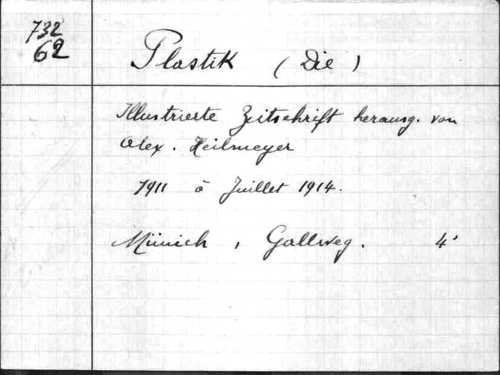 732
62
Plastik (Die)
Illustrierte Zeitschrift herausg. von
Alex. Heilmeyer
1911 à Juillet 1914.
Münich, Gallweg. 4°